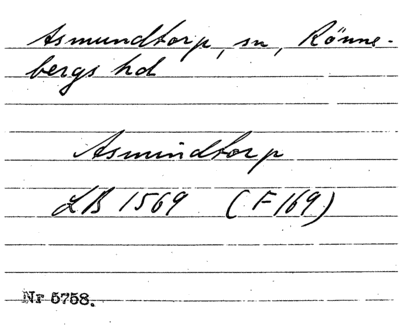 Asmundtorp, sn, Rönne-
bergs hd
Asmindtorp
LB 1569 (F 169)
Nr 5758.